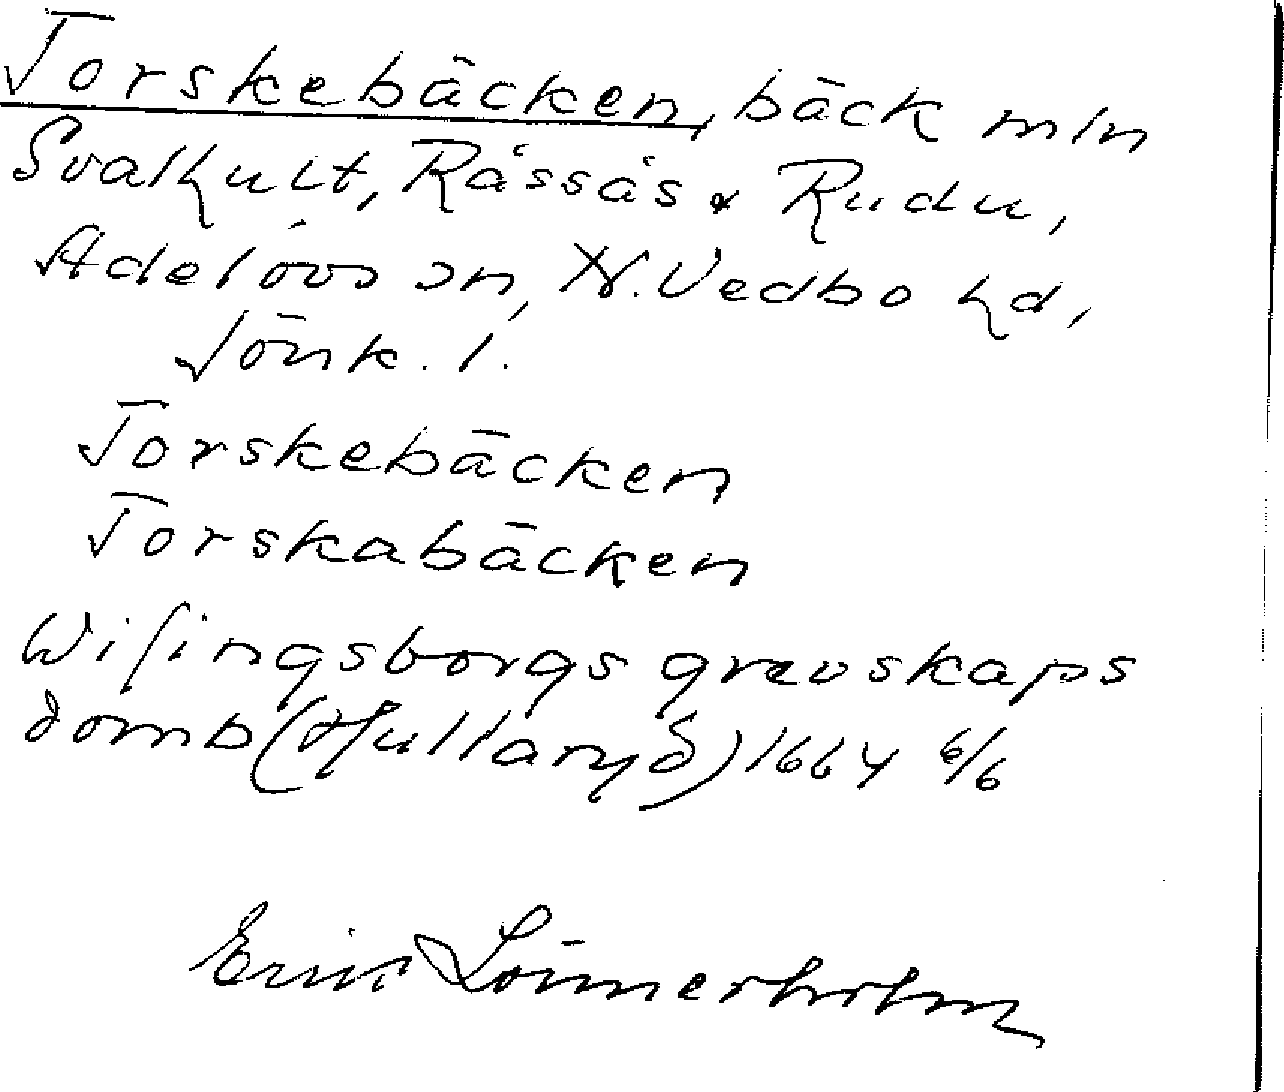 Torskebäcken, bäck mln
Svalhult, Råssås & Rudu,
Adelövs sn, N. Vedbo hd,
Jönk. l.
Torskebäcken
Torskabäcken
Wisingsborgs grevskaps
domb (Hullaryd) 1664 6/6
Erik Lönnerholm